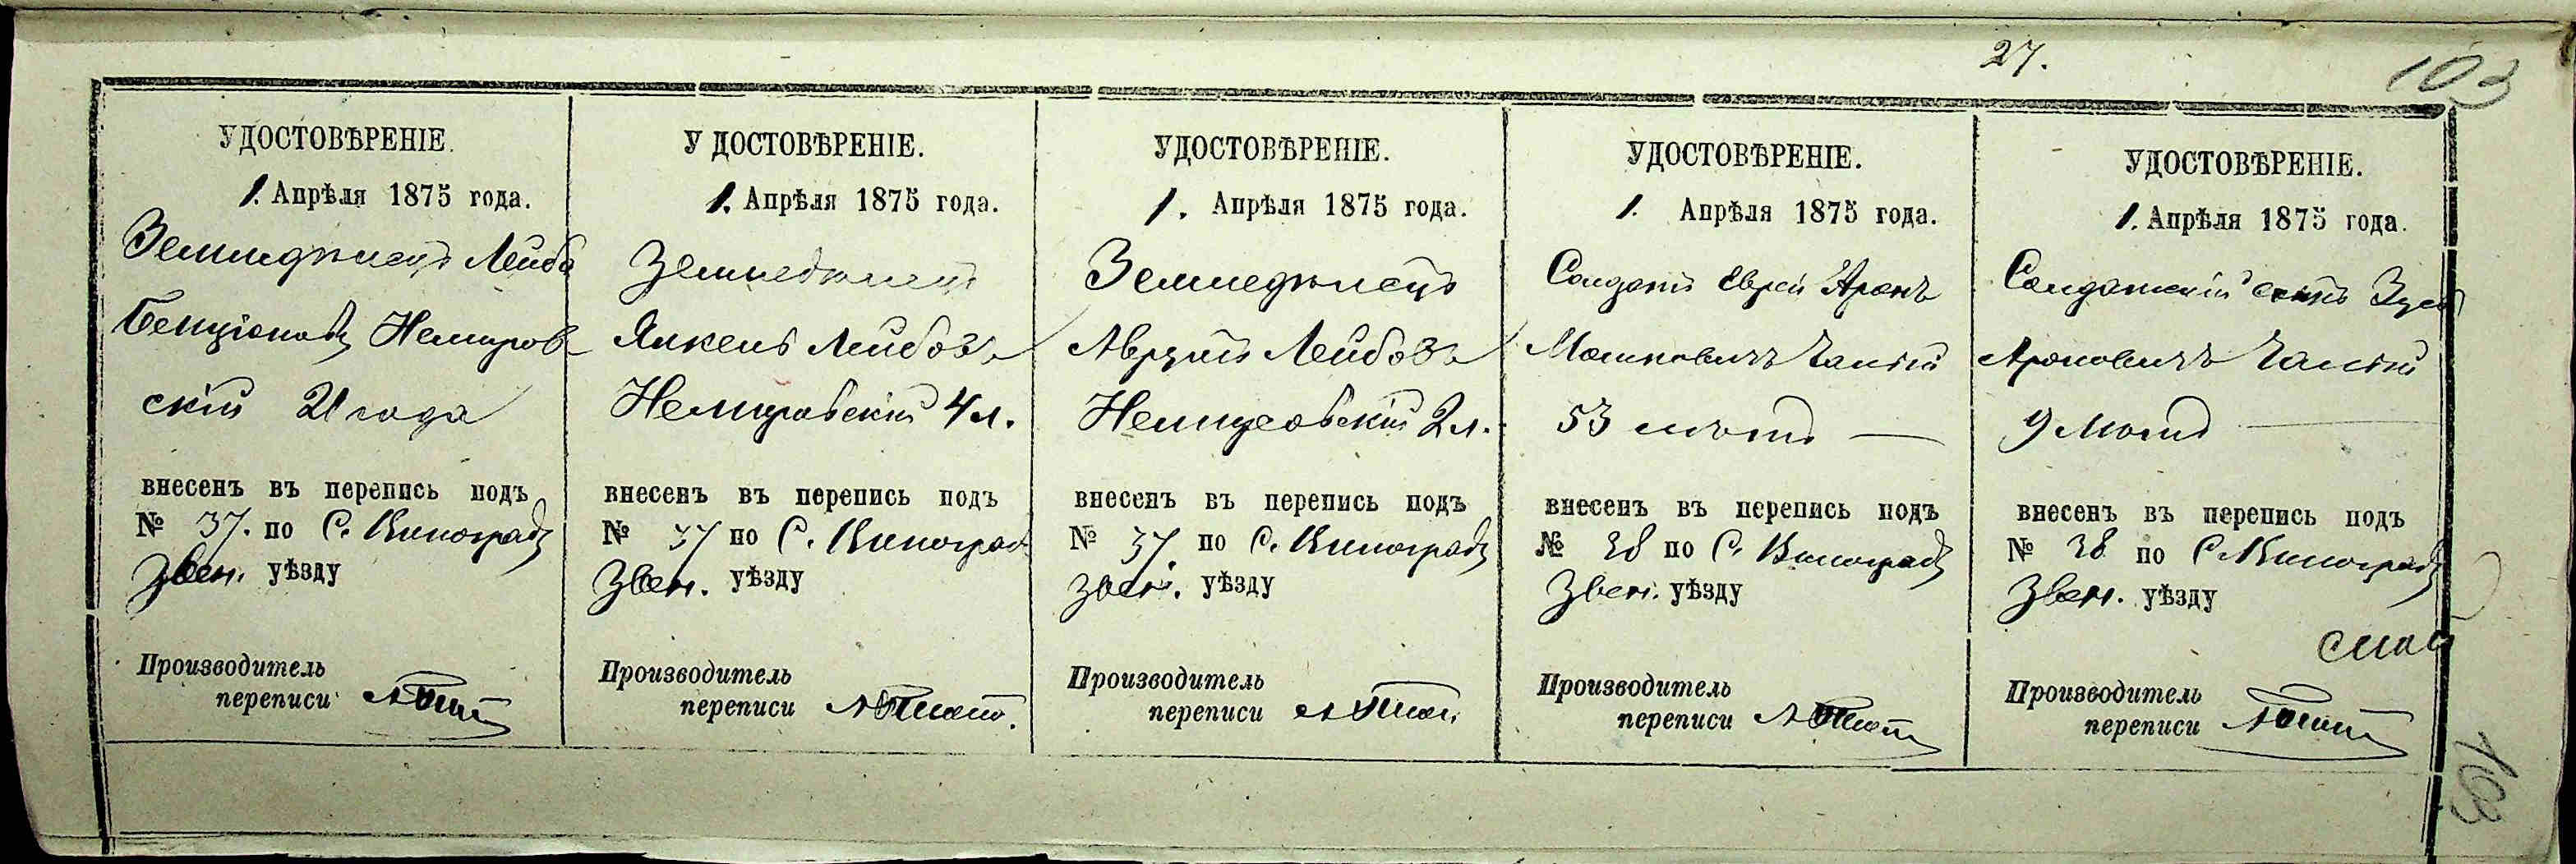 27.
103
УДОСТОВѢРЕНІЕ.
1. Апрѣля 1875 года.
Земледѣлецъ Лейба
Бенціоновъ Немиров-
скій 21 года
внесенъ въ перепись подъ
№ 37. по С. Виноградъ
Звен. уѣзду
Производитель
переписи
УДОСТОВѢРЕНІЕ.
1. Апрѣля 1875 года.
Земледѣлецъ
Янкель Лейбовъ
Немировскій 4 л.
внесенъ въ перепись подъ
№ 37 по С. Виноград
Звен. уѣзду
Производитель
переписи
УДОСТОВѢРЕНІЕ.
1. Апрѣля 1875 года.
Земледѣлецъ
Аврумъ Лейбовъ
Немировскій 2 л.
внесенъ въ перепись подъ
№ 37. по С. Виноградъ
Звен. уѣзду
Производитель
переписи
УДОСТОВѢРЕНІЕ.
1. Апрѣля 1875 года.
Солдатъ Еврей Аронъ
Мошковичъ
53 лѣтъ —
внесенъ въ перепись подъ
№ 38 по С. Виноградъ
Звен. уѣзду
Производитель
переписи
УДОСТОВѢРЕНІЕ.
1. Апрѣля 1875 года.
Солдатскій сынъ
Ароновичъ
9 лѣтъ —
внесенъ въ перепись подъ
№ 38 по С. Виноградъ
Звен. уѣзду
Производитель
переписи
103